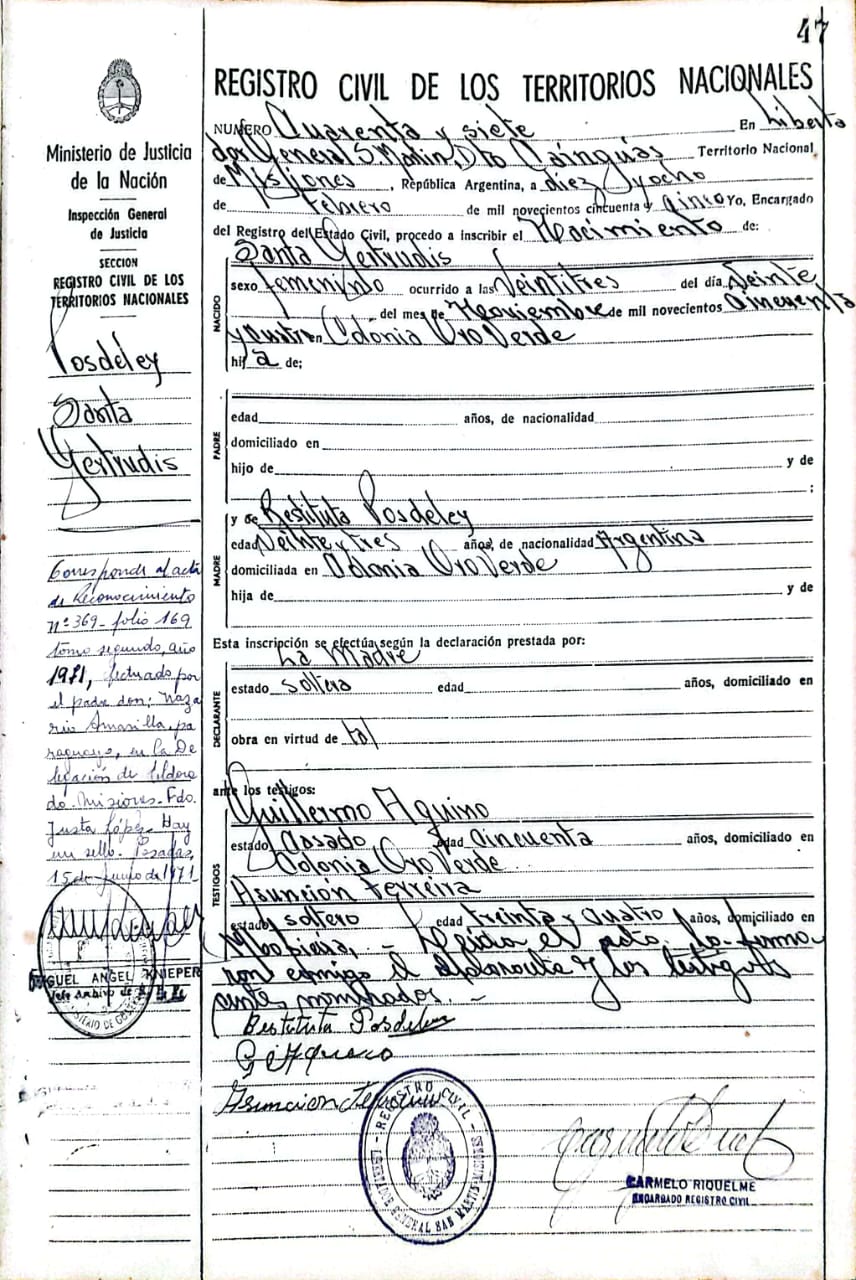 47
REGISTRO CIVIL DE LOS TERRITORIOS NACIONALES
NUMERO Cuarenta y siete En Liberta
dor General S. Martín, Dto Cainguás Territorio Nacional
de Misiones, República Argentina, a diez y ocho
de Febrero de mil novecientos cincuenta y cinco Yo, Encargado
del Registro del Estado Civil, procedo a inscribir el Nacimiento de:
NACIDO
Santa Gertrudis
sexo femenindo ocurrido a las Veintitres del día Veinte
del mes de Noviembre de mil novecientos Cincuenta
y cuatro en Colonia Oro Verde
hija de;
PADRE
edad años, de nacionalidad
domiciliado en
hijo de y de
;
MADRE
y de Restituta Posdeley
edad Veinte y tres años, de nacionalidad Argentina
domiciliada en Colonia Oro Verde
hija de y de
Esta inscripción se efectúa según la declaración prestada por:
DECLARANTE
La Madre
estado soltera edad años, domiciliado en
obra en virtud de tal
ante los testigos:
TESTIGOS
Guillermo Aquino
estado Casado edad Cincuenta años, domiciliado en
Colonia Oro Verde
Asunción Ferreira
estado soltero edad treinta y cuatro años, domiciliado en
Mbopicuá, - Leida el acto la firma
ron conmigo el declarante y los testigos
ante nombrados. -
Restituta Posdeley
Asuncion
REGISTRO CIVIL
LIBERTADOR GENERAL SAN MARTIN MISIONES
CARMELO RIQUELME
ENCARGADO REGISTRO CIVIL
Ministerio de Justicia
de la Nación
Inspección General
de Justicia
SECCION
REGISTRO CIVIL DE LOS
TERRITORIOS NACIONALES
Posdeley
Santa
Gertrudis
Corresponde al acta
de Reconocimiento
Nº 369 - folio 169
tomo segundo, año
1971, efectuado por
el padre don: Naza
rio Amarilla, pa
raguayo, en la De
legación de Eldora
do. Misiones. Fdo.
Justa López. Hay
un sello. Posadas,
15 de Junio de 1971
MIGUEL ANGEL KNIEPER
Jefe Archivo de
MINISTERIO DE GOBIERNO